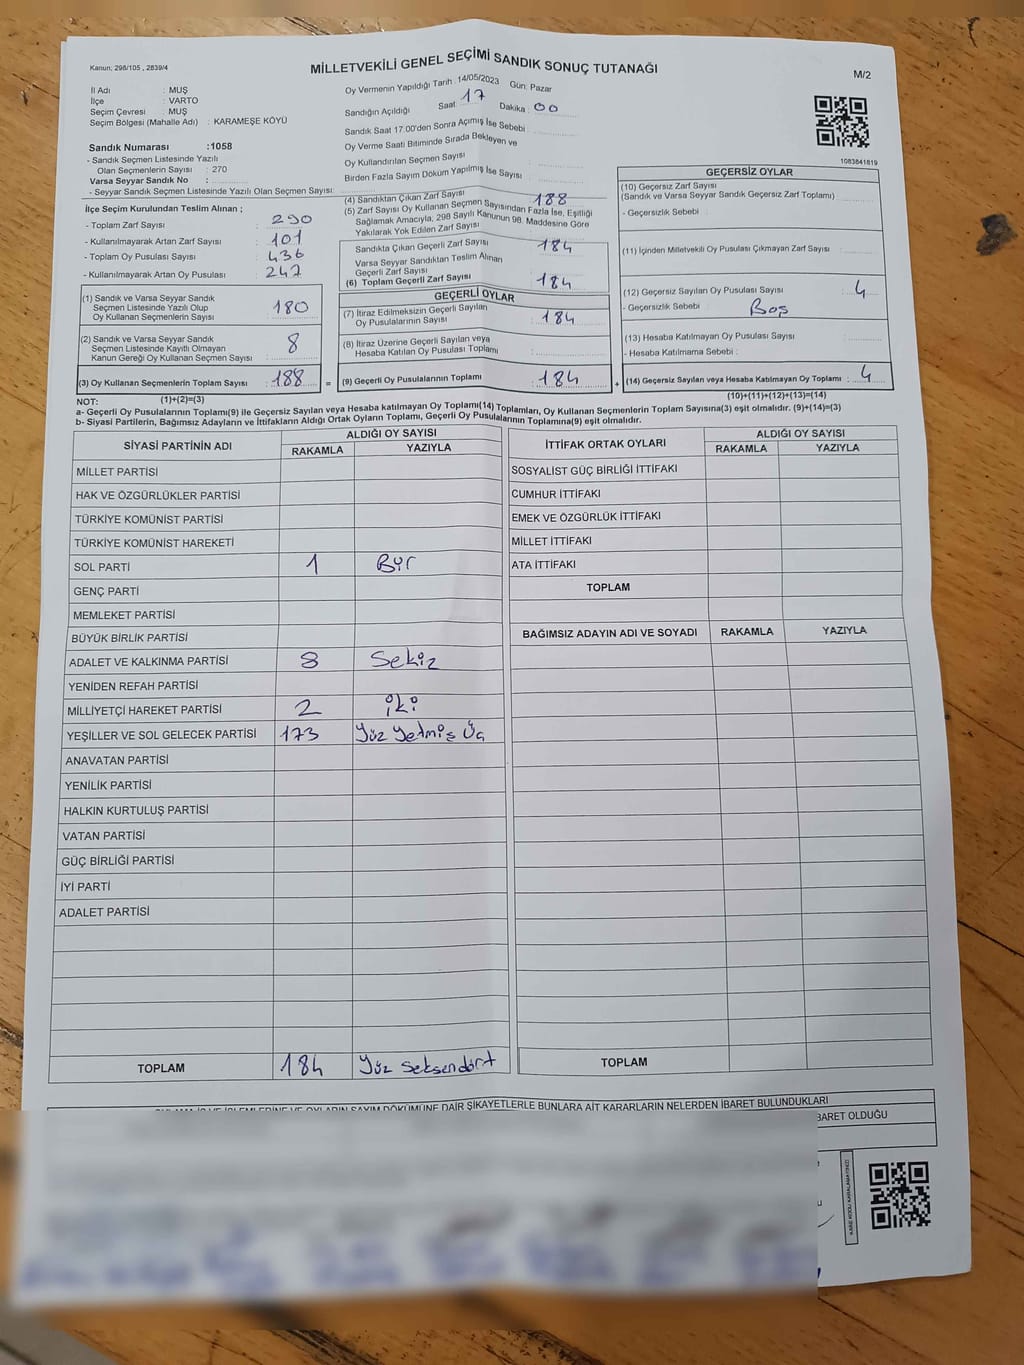 Kanun; 298/105 , 2839/4
MİLLETVEKİLİ GENEL SEÇİMİ SANDIK SONUÇ TUTANAĞI
M/2
İl Adı : MUŞ
İlçe : VARTO
Seçim Çevresi : MUŞ
Seçim Bölgesi (Mahalle Adı) : KARAMEŞE KÖYÜ
Sandık Numarası :1058
- Sandık Seçmen Listesinde Yazılı
Olan Seçmenlerin Sayısı : 270
Varsa Seyyar Sandık No :
- Seyyar Sandık Seçmen Listesinde Yazılı Olan Seçmen Sayısı:
Oy Vermenin Yapıldığı Tarih : 14/05/2023 Gün: Pazar
Sandığın Açıldığı Saat : 17 Dakika : 00
Sandık Saat 17.00'den Sonra Açımış İse Sebebi :
Oy Verme Saati Bitiminde Sırada Bekleyen ve
Oy Kullandırılan Seçmen Sayısı :
Birden Fazla Sayım Döküm Yapılmış İse Sayısı :
1083841819
İlçe Seçim Kurulundan Teslim Alınan ;
- Toplam Zarf Sayısı : 290
- Kullanılmayarak Artan Zarf Sayısı : 101
- Toplam Oy Pusulası Sayısı : 436
- Kullanılmayarak Artan Oy Pusulası : 247
(1) Sandık ve Varsa Seyyar Sandık
Seçmen Listesinde Yazılı Olup
Oy Kullanan Seçmenlerin Sayısı : 180
(2) Sandık ve Varsa Seyyar Sandık
Seçmen Listesinde Kayıtlı Olmayan
Kanun Gereği Oy Kullanan Seçmen Sayısı : 8
(3) Oy Kullanan Seçmenlerin Toplam Sayısı : 188
(1)+(2)=(3)
(4) Sandıktan Çıkan Zarf Sayısı : 188
(5) Zarf Sayısı Oy Kullanan Seçmen Sayısından Fazla İse, Eşitliği
Sağlamak Amacıyla; 298 Sayılı Kanunun 98. Maddesine Göre
Yakılarak Yok Edilen Zarf Sayısı :
Sandıkta Çıkan Geçerli Zarf Sayısı : 184
Varsa Seyyar Sandıktan Teslim Alınan
Geçerli Zarf Sayısı :
(6) Toplam Geçerli Zarf Sayısı : 184
GEÇERLİ OYLAR
(7) İtiraz Edilmeksizin Geçerli Sayılan
Oy Pusulalarının Sayısı : 184
(8) İtiraz Üzerine Geçerli Sayılan veya
Hesaba Katılan Oy Pusulası Toplamı :
= (9) Geçerli Oy Pusulalarının Toplamı : 184
GEÇERSİZ OYLAR
(10) Geçersiz Zarf Sayısı
(Sandık ve Varsa Seyyar Sandık Geçersiz Zarf Toplamı) :
- Geçersizlik Sebebi :
(11) İçinden Milletvekili Oy Pusulası Çıkmayan Zarf Sayısı :
(12) Geçersiz Sayılan Oy Pusulası Sayısı : 4
- Geçersizlik Sebebi : Boş
(13) Hesaba Katılmayan Oy Pusulası Sayısı :
- Hesaba Katılmama Sebebi :
+ (14) Geçersiz Sayılan veya Hesaba Katılmayan Oy Toplamı : 4
(10)+(11)+(12)+(13)=(14)
NOT:
a- Geçerli Oy Pusulaları Toplamı(9) ile Geçersiz Sayılan veya Hesaba katılmayan Oy Toplamı(14) Toplamları, Oy Kullanan Seçmenlerin Toplam Sayısına(3) eşit olmalıdır. (9)+(14)=(3)
b- Siyasi Partilerin, Bağımsız Adayların ve İttifakların Aldığı Ortak Oyların Toplamı, Geçerli Oy Pusulalarının Toplamına(9) eşit olmalıdır.
SİYASİ PARTİNİN ADI
ALDIĞI OY SAYISI
RAKAMLA YAZIYLA
MİLLET PARTİSİ
HAK VE ÖZGÜRLÜKLER PARTİSİ
TÜRKİYE KOMÜNİST PARTİSİ
TÜRKİYE KOMÜNİST HAREKETİ
SOL PARTİ 1 Bir
GENÇ PARTİ
MEMLEKET PARTİSİ
BÜYÜK BİRLİK PARTİSİ
ADALET VE KALKINMA PARTİSİ 8 Sekiz
YENİDEN REFAH PARTİSİ
MİLLİYETÇİ HAREKET PARTİSİ 2 iki
YEŞİLLER VE SOL GELECEK PARTİSİ 173 Yüz Yetmiş Üç
ANAVATAN PARTİSİ
YENİLİK PARTİSİ
HALKIN KURTULUŞ PARTİSİ
VATAN PARTİSİ
GÜÇ BİRLİĞİ PARTİSİ
İYİ PARTİ
ADALET PARTİSİ
TOPLAM 184 Yüz Seksendört
İTTİFAK ORTAK OYLARI
ALDIĞI OY SAYISI
RAKAMLA YAZIYLA
SOSYALİST GÜÇ BİRLİĞİ İTTİFAKI
CUMHUR İTTİFAKI
EMEK VE ÖZGÜRLÜK İTTİFAKI
MİLLET İTTİFAKI
ATA İTTİFAKI
TOPLAM
BAĞIMSIZ ADAYIN ADI VE SOYADI RAKAMLA YAZIYLA
TOPLAM
DÖKÜMÜNE DAİR ŞİKAYETLERLE BUNLARA AİT KARARLARIN NELERDEN İBARET BULUNDUKLARI
BARET OLDUĞU